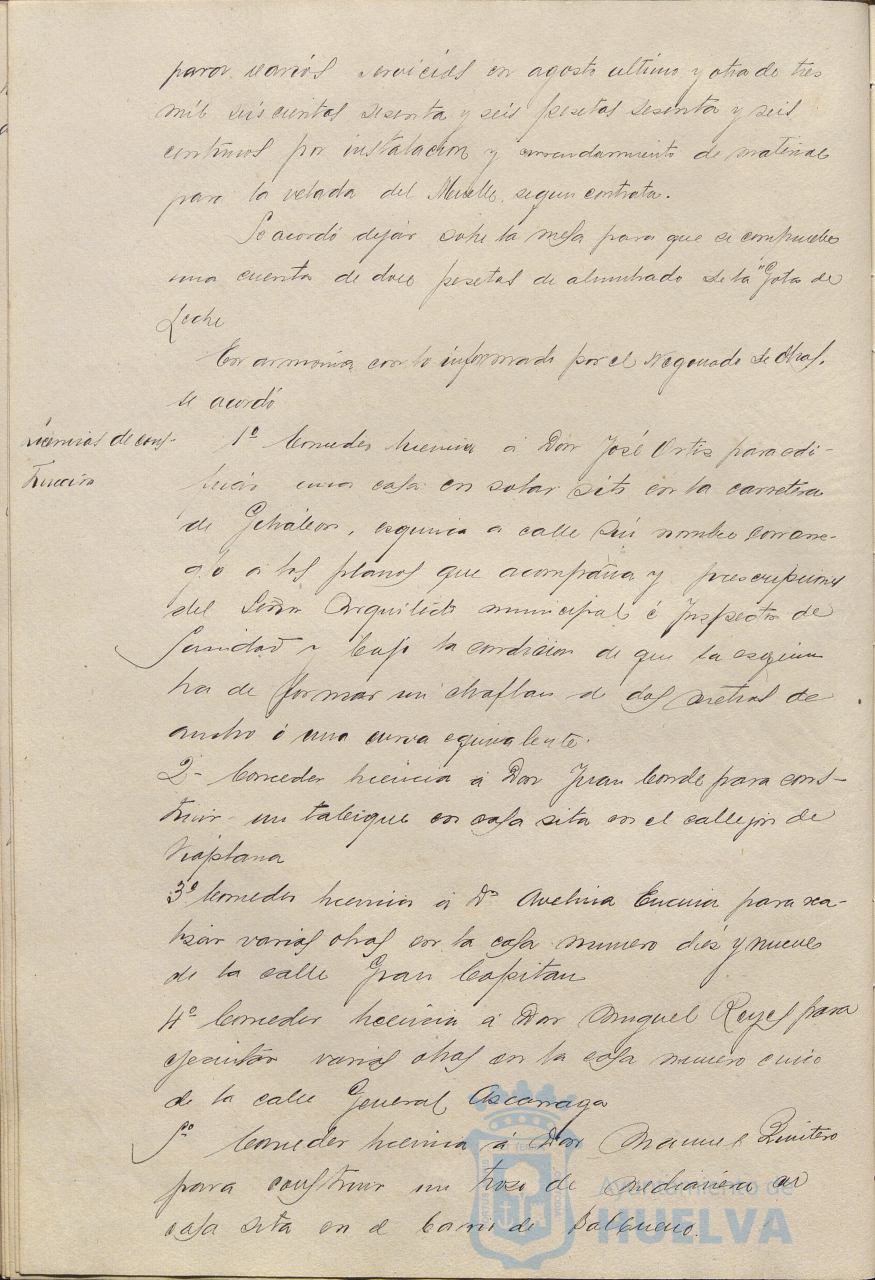 para varios servicios en agosto ultimo y otra de tres
mil seiscientas sesenta y seis pesetas sesenta y seis
centimos por instalacion y arrendamiento de material
para la velada del Muelle, segun contrata.
Se acordó dejar sobre la mesa para que se compruebe
una cuenta de doce pesetas de alumbrado de la "Gota de
Leche
En armonia con lo informado por el Negociado de Obras,
se acordó
Licencias de cons-
trucción
1º Conceder licencia á Don José Ortiz para edi-
ficar una casa en solar sito en la carretera
de Gibraleon, esquina a calle sin nombre con arre-
glo a los planos que acompaña y prescripciones
del Señor Arquitecto municipal é Inspector de
Sanidad y bajo la condicion de que la esquina
ha de formar un chaflan de dos metros de
ancho ó una curva equivalente.
2- Conceder licencia á Don Juan Conde para cons-
truir un tabique en casa sita en el callejon de
Viaplana
3º Conceder licencia á Dª Avelina para rea-
lizar varias obras en la casa numero diez y nueve
de la calle Gran Capitan
4º Conceder licencia á Don Miguel Reyes para
ejecutar varias obras en la casa numero cinco
de la calle General Azcarraga
5º Conceder licencia á Don Manuel Quintero
para construir un trozo de medianera en
casa sita en el Barrio de Balbueno.
Ayuntamiento de
HUELVA